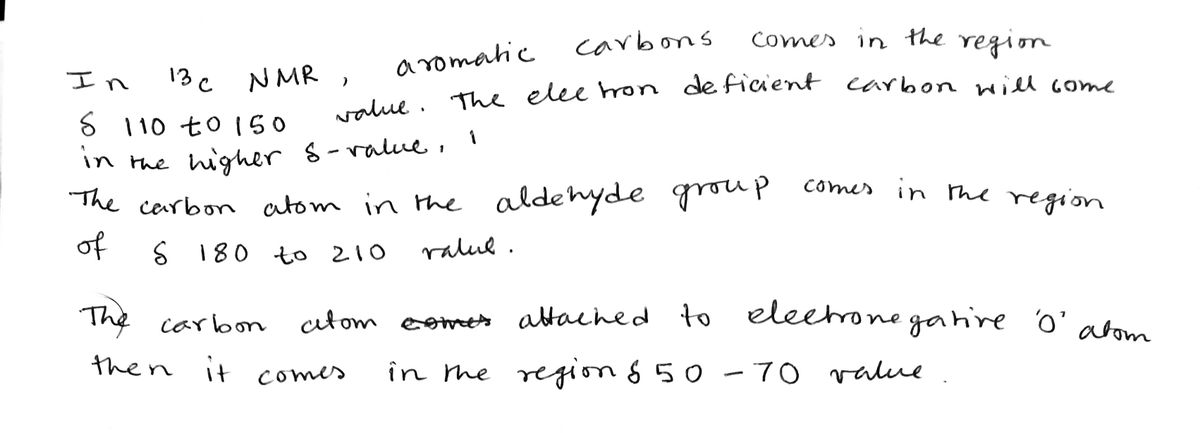 In 13C NMR, aromatic carbons comes in the region
δ 110 to 150 value. The electron deficient carbon will come
in the higher δ-value,
The carbon atom in the aldehyde group comes in the region
of δ 180 to 210 value.
The carbon atom comes attached to electronegative 'O' atom
then it comes in the region δ 50 - 70 value.